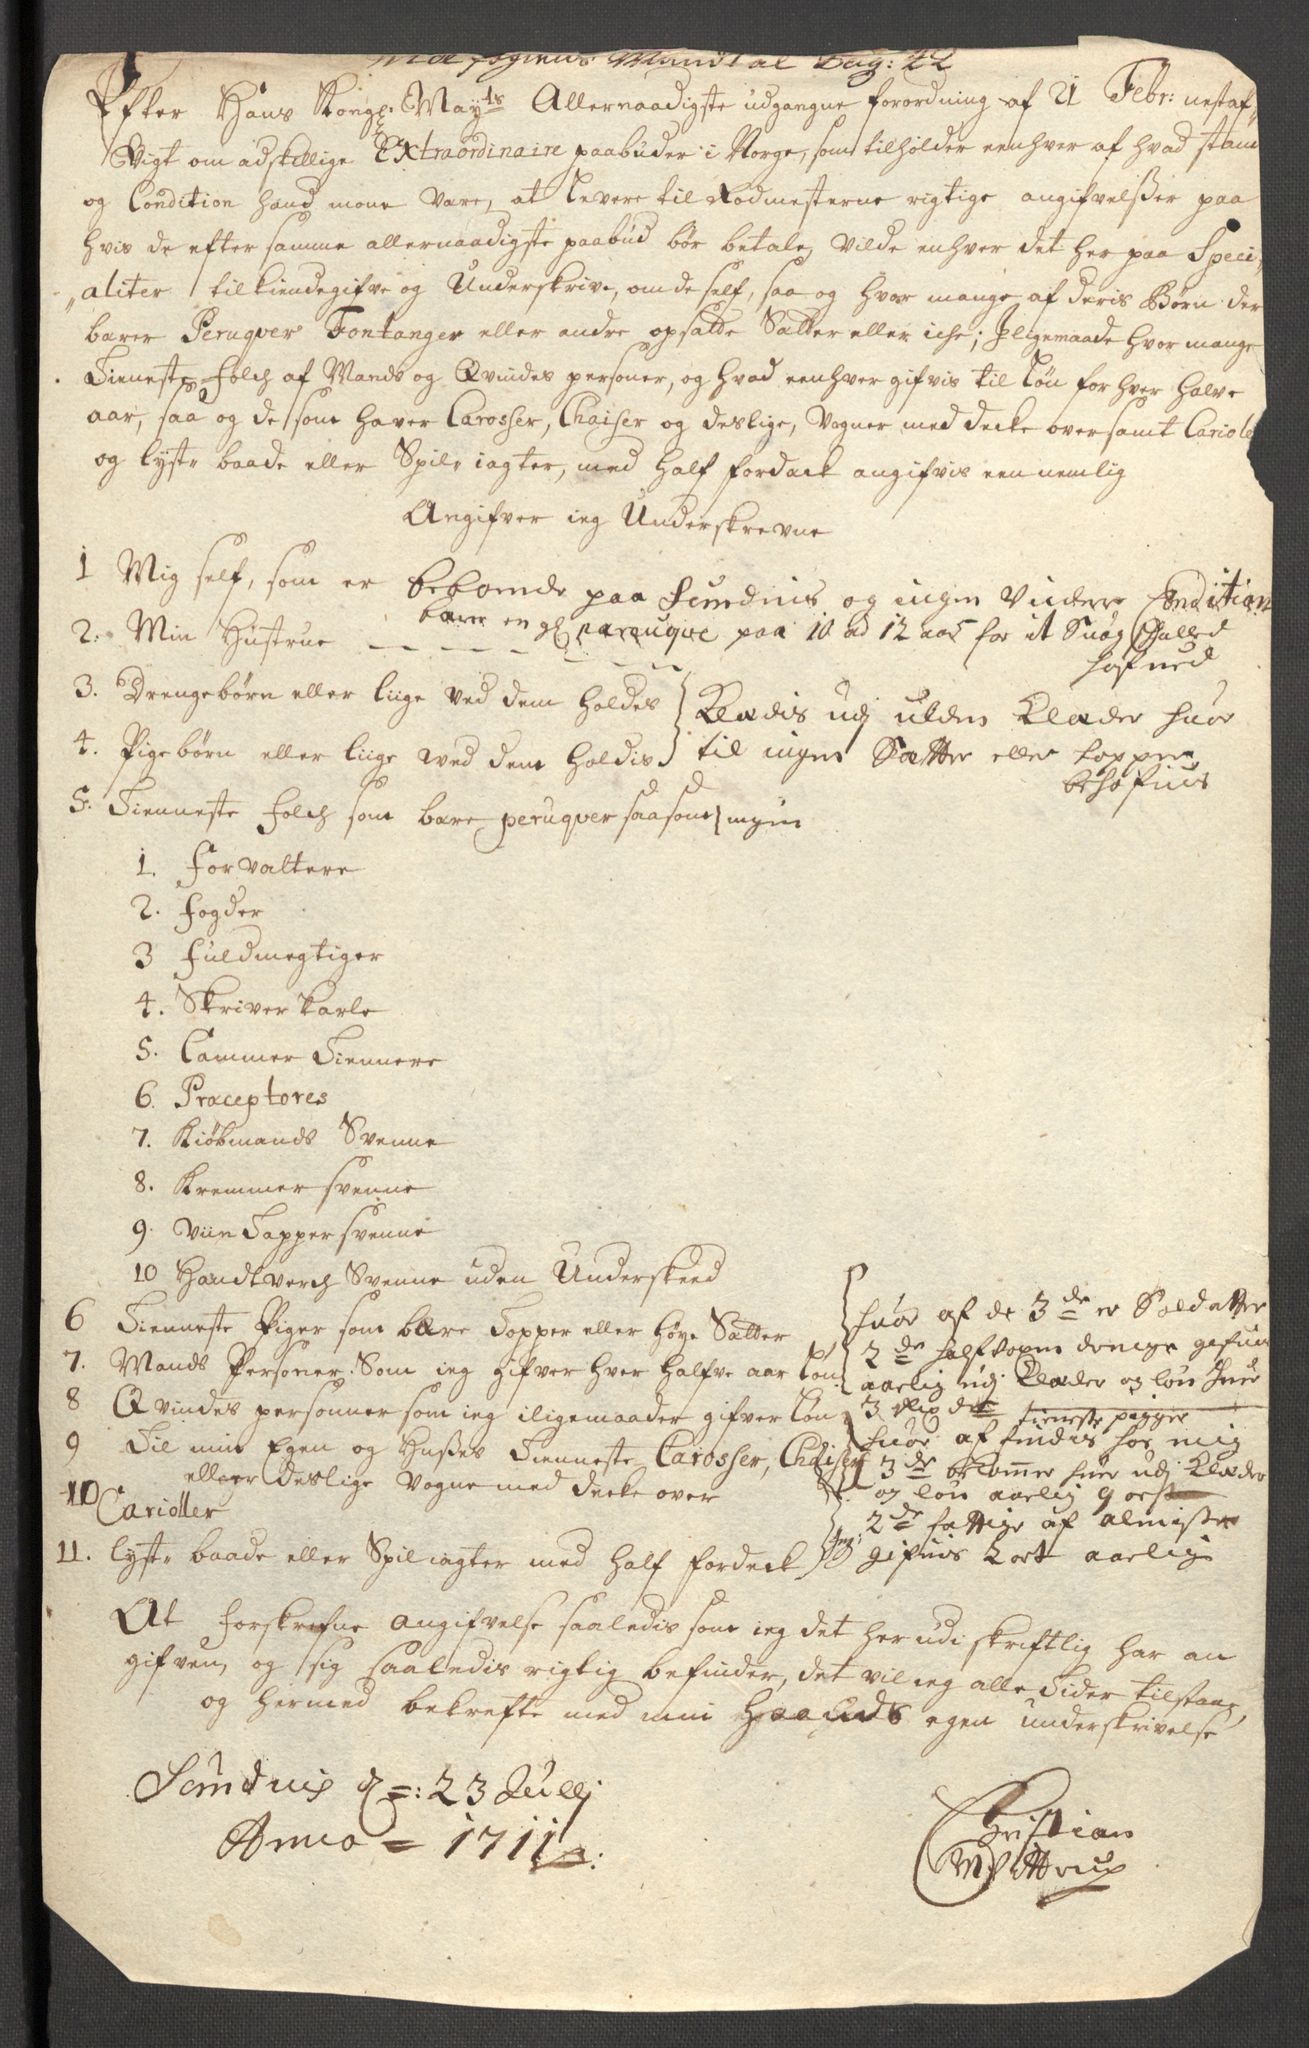 Mandtal Pag: 22
Efter Hans Kongl: May:ts Allernaadigste udgangne forordning af 21 Febr: nestaf„
Vigt om adskillige Extraordinaire paabuder i Norge, som tilholder eenhver af hvad stand
og Condition hand mone være, at levere til Rodmesterne rigtige angifvelßer paa
hvis de efter samme allernaadigste paabud bør betale, vilde enhver det her paa Speci„
„aliter tilkiendegifve og Underskrive, om de self, saa og hvor mange af deris Børn der
bærer Peruqver Fontanger eller andre opsatde Sætter eller iche; Jligemaade hvor mange
Tieneste folch af Mands og Qvindes personer, og hvad eenhver gifvis til Løn for hver halve
aar, saa og de som haver Carosser, Chaiser og deslige, Vogner med decke over samt Cariole
og lyst baade eller Spil iagter, med half fordæck angifvis een nemlig
Angifver ieg Underskrevne
1 Mig self, som er beboende paa Semdnis og ingen Videre Condition
bærer en gl paruque paa 10 ad 12 aar for it Suag Skalled
hofued
2. Min Hustrue
3. Drengebørn eller liige ved dem holdes } Klædis udj ulden Klæder huor
4. Pigebørn eller liige wed dem holdis } til ingen Sætter eller topper
behøfuis
5. Tienneste folch som bære peruqver saasom } ingen
1. forvaltere
2. fogder
3 fuldmegtiger
4. Skriver karle
5. Cammer Tiennere
6. Præceptores
7. Kiøbmands Svenne
8. Kremmer svenne
9. Viin Tapper svenne
10 Handtverch Svenne uden Underskeed
6 Tienneste Piger som bære Topper eller høye Sætter
7. Mands Personer. Som ieg gifver hver halfve aar løn
8 Qvindes personner som ieg iligemaader gifver Løn
9 Til min Egen og Hußes Tienneste, Carosser, Chaiser
eller deslige Vogne med decke over
10 Carioller
11. lyst baade eller Spil iagter med half fordeck
huor af de 3de er Soldatter
2de halfvoxne drenge gifuis
aarlig udj Klæder og løn huer
3 slio dr tieneste pigger
huor af findis hos mig
3de bekommer huer udj Klæder
og løn aarlig 9 ort
2de fattige af almiße
gifuis 2 ort aarlig
At forskrefne angifvelse saaledis som ieg det her udi skriftlig har an
gifven, og sig saaledis rigtig befinder, det vil ieg alle Tider tilstaae,
og hermed bekrefte med min Haands egen underskrivelse
Semdnis d: 23 Jullj
Anno = 1711
Christian
Wittrup